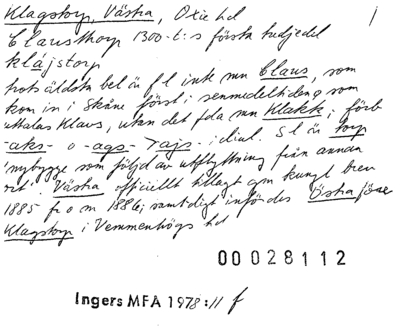 Klagstorp, Västra, Oxie hd
Clausthorp 1300-t:s första tredjedel
klájstorp
trots äldsta bel är f l inte mn Claus, som
kom in i Skåne först i senmedeltiden o som
uttalas Klaus, utan det fda mn Klakk; förb
-aks- o -ags- > ajs- i dial. S l är torp
'nybygge som följd av utflyttning från annan
ort'. Västra officiellt tillagt gm kungl brev
1885 fr o m 1886; samtidigt infördes Östra före
Klagstorp i Vemmenhögs hd
00028112
Ingers MFA 1978:11 f